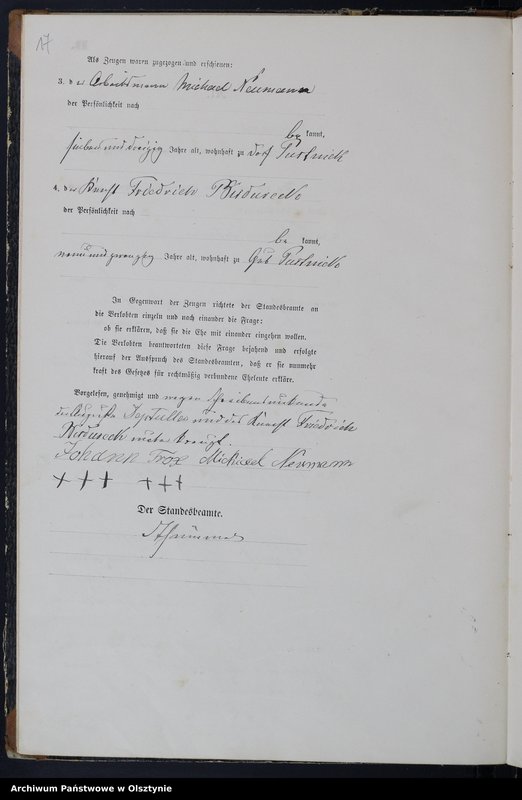 17
Als Zeugen waren zugezogen und erschienen:
3. der Arbeitsmann Michael Neumann
der Persönlichkeit nach
be kannt,
sieben und dreizig Jahre alt, wohnhaft zu Dorf
4. der Knecht Friedrich
der Persönlichkeit nach
be kannt,
neun und zwanzig Jahre alt, wohnhaft zu Gut
In Gegenwart der Zeugen richtete der Standesbeamte an
die Verlobten einzeln und nach einander die Frage:
ob sie erklären, daß sie die Ehe mit einander eingehen wollen.
Die Verlobten beantworteten diese Frage bejahend und erfolgte
hierauf der Ausspruch des Standesbeamten, daß er sie nunmehr
kraft des Gesetzes für rechtmäßig verbundene Eheleute erkläre.
Vorgelesen, genehmigt und wegen Schreibensunkunde
der Auguste und des Knecht Friedrich
unterkreuzt.
Johann Michael Neumann
+++ +++
Der Standesbeamte.
Archiwum Państwowe w Olsztynie